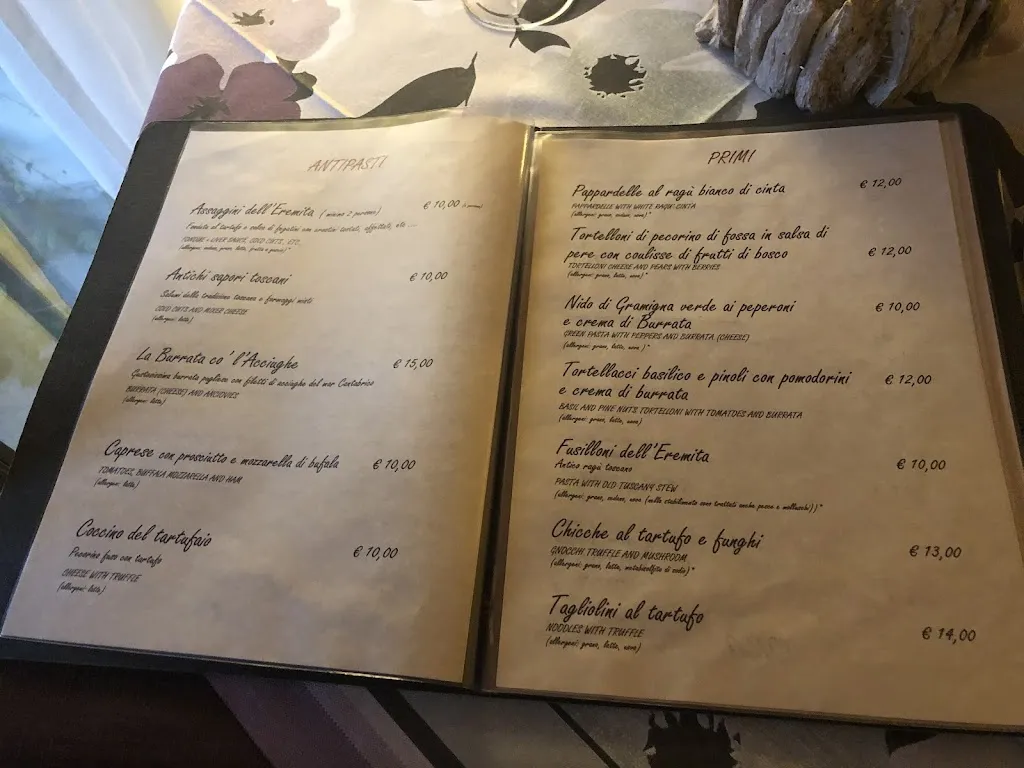 ANTIPASTI
Assaggini dell'Eremita (minimo 2 persone) € 10,00
Fonduta al tartufo e salsa di fegatini con crostini tostati, affettati, etc ...
COLD CUTS, ETC.
Antichi sapori toscani € 10,00
Salumi della tradizione toscana e formaggi misti
COLD CUTS AND MIXED CHEESE
(allergeni: latte)
La Burrata co' l'Acciughe € 15,00
Gustosissima burrata pugliese con filetti di acciughe del mar Cantabrico
BURRATA (CHEESE) AND ANCIOVIES
(allergeni: latte)
Caprese con prosciutto e mozzarella di bufala € 10,00
TOMATOES, BUFFALA MOZZARELLA AND HAM
(allergeni: latte)
Coccino del tartufaio € 10,00
Pecorino fuso con tartufo
CHEESE WITH TRUFFLE
(allergeni: latte)
PRIMI
Pappardelle al ragù bianco di cinta € 12,00
PAPPARDELLE WITH WHITE RAGU' CINTA
(allergeni: grano, sedano, uova)*
Tortelloni di pecorino di fossa in salsa di
pere con coulisse di frutti di bosco € 12,00
TORTELLONI CHEESE AND PEARS WITH BERRIES
(allergeni: grano, latte, uova)*
Nido di Gramigna verde ai peperoni € 10,00
e crema di Burrata
GREEN PASTA WITH PEPPERS AND BURRATA (CHEESE)
(allergeni: grano, latte, uova)*
Tortellacci basilico e pinoli con pomodorini € 12,00
e crema di burrata
BASIL AND PINE NUTS TORTELLONI WITH TOMATOES AND BURRATA
(allergeni: grano, latte, uova)
Fusilloni dell'Eremita € 10,00
Antico ragù toscano
PASTA WITH OLD TUSCANY STEW
(allergeni: grano, sedano, uova (nello stabilimento sono trattati anche pesce e molluschi))*
Chicche al tartufo e funghi € 13,00
GNOCCHI TRUFFLE AND MUSHROOM
(allergeni: grano, latte, metabisolfito di sodio)*
Tagliolini al tartufo € 14,00
NOODLES WITH TRUFFLE
(allergeni: grano, latte, uova)